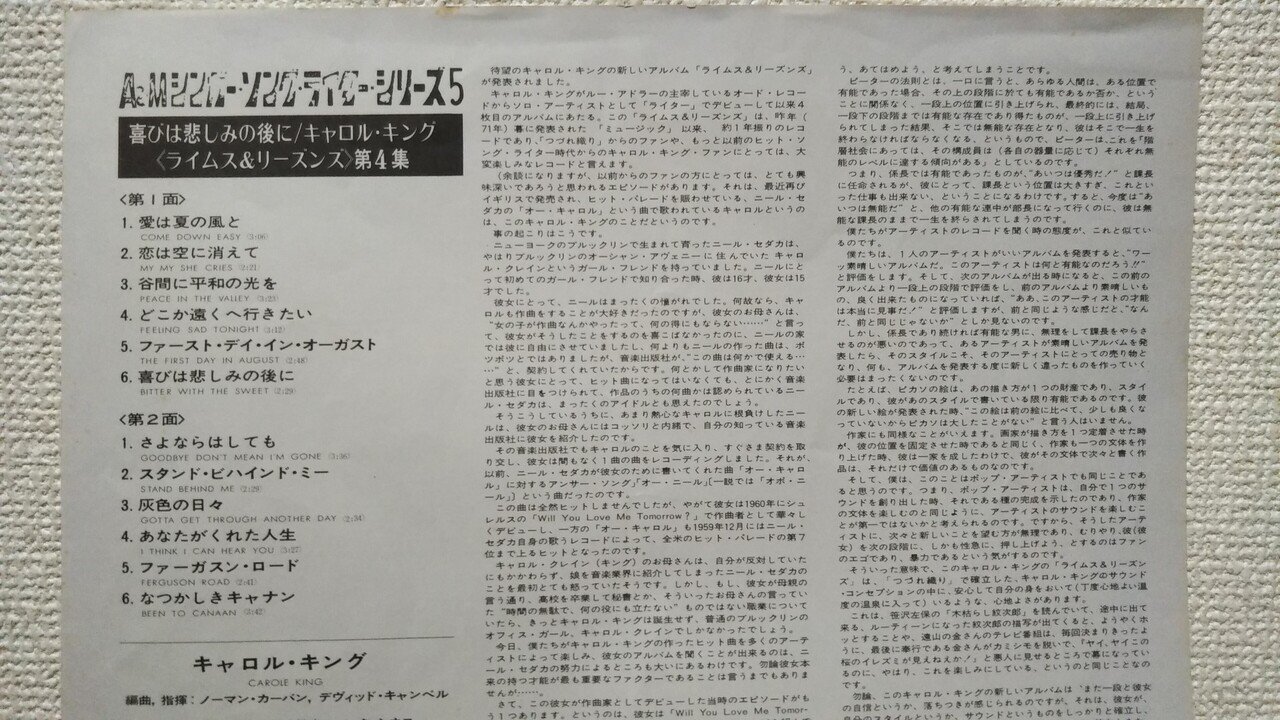 A&Mシンガー・ソング・ライター・シリーズ5
喜びは悲しみの後に/キャロル・キング
〈ライムス&リーズンズ〉第4集
〈第1面〉
1. 愛は夏の風と
COME DOWN EASY (3:06)
2. 恋は空に消えて
MY MY SHE CRIES (2:21)
3. 谷間に平和の光を
PEACE IN THE VALLEY (3:23)
4. どこか遠くへ行きたい
FEELING SAD TONIGHT (3:12)
5. ファースト・デイ・イン・オーガスト
THE FIRST DAY IN AUGUST (2:48)
6. 喜びは悲しみの後に
BITTER WITH THE SWEET (2:29)
〈第2面〉
1. さよならはしても
GOODBYE DON'T MEAN I'M GONE (3:36)
2. スタンド・ビハインド・ミー
STAND BEHIND ME (2:29)
3. 灰色の日々
GOTTA GET THROUGH ANOTHER DAY (2:34)
4. あなたがくれた人生
I THINK I CAN HEAR YOU (3:27)
5. ファーガスン・ロード
FERGUSON ROAD (2:41)
6. なつかしきキャナン
BEEN TO CANAAN (3:42)
キャロル・キング
CAROLE KING
編曲, 指揮:ノーマン・カーバン, デヴィッド・キャンベル
待望のキャロル・キングの新しいアルバム「ライムス&リーズンズ」
が発表されました。
キャロル・キングがルー・アドラーの主宰しているオード・レコー
ドからソロ・アーティストとして「ライター」でデビューして以来4
枚目のアルバムにあたる。この「ライムス&リーズンズ」は、昨年(
71年)暮に発表された「ミュージック」以来、約1年振りのレコ
ードであり、「つづれ織り」からのファンや、もっと以前のヒット・ソ
ング・ライター時代からのキャロル・キング・ファンにとっては、大
変楽しみなレコードと言えます。
(余談になりますが、以前からのファンの方にとっては、とても興
味深いであろうと思われるエピソードがあります。それは、最近再び
イギリスで発売され、ヒット・パレードを賑わせている、ニール・セ
ダカの「オー・キャロル」という曲で歌われているキャロルというの
は、このキャロル・キングのことだというのです。
事の起こりはこうです。
ニューヨークのブルックリンで生まれて育ったニール・セダカは、
やはりブルックリンのオーシャン・アヴェニーに住んでいたキャロ
ル・クレインというガール・フレンドを持っていました。ニールにと
って初めてのガール・フレンドで知り合った時、彼は16才、彼女は15
才でした。
彼女にとって、ニールはまったくの憧がれでした。何故なら、キャ
ロルも作曲をすることが大好きだったのですが、彼女のお母さんは、
"女の子が作曲なんかやったって、何の得にもならない……"と言っ
て、彼女がそうしたことをするのを喜こばなかったのに、ニールの家
では彼に自由にさせていましたし、何よりもニールの作った曲は、ポ
ツポツとではありましたが、音楽出版社が、"この曲は何かで使える…
…"と、契約してくれていたからです。何とかして作曲家になりたい
と思う彼女にとって、ヒット曲になってはいなくても、とにかく音楽
出版社に目をつけられて、作品のうちの何曲かは認められているニー
ル・セダカは、まったくのアイドルとも思えたのでしょう。
そうこうしているうちに、あまり熱心なキャロルに根負けしたニー
ルは、彼女のお母さんにはコッソリと内緒で、自分の知っている音楽
出版社に彼女を紹介したのです。
その音楽出版社でもキャロルのことを気に入り、すぐさま契約を取
り交し、彼女は間もなく1曲の曲をレコーディングしました。それが、
以前、ニール・セダカが彼女のために書いてくれた曲「オー・キャロ
ル」に対するアンサー・ソング「オー・ニール」[一説では「オボ・ニ
ール」]という曲だったのです。
この曲は全然ヒットしませんでしたが、やがて彼女は1960年にシュ
レルスの「Will You Love Me Tomorrow?」で作曲者として華々し
くデビューし、一方の「オー・キャロル」も1959年12月にはニール・
セダカ自身の歌うレコードによって、全米のヒット・パレードの第7
位まで上るヒットとなったのです。
キャロル・クレイン(キング)のお母さんは、自分が反対していた
にもかかわらず、娘を音楽業界に紹介してしまったニール・セダカの
ことを最初とても怒っていたそうです。しかし、もし、彼女が母親の
言う通り、高校を卒業して秘書とか、そういったお母さんの言ってい
た"時間の無駄で、何の役にも立たない"ものではない職業について
いたら、きっとキャロル・キングは誕生せず、普通のブルックリンの
オフィス・ガール、キャロル・クレインでしかなかったでしょう。
今日、僕たちがキャロル・キングの作ったヒット曲を多くのアーテ
ィストによって楽しみ、彼女のアルバムを聞くことが出来るのは、ニ
ール・セダカの努力によるところも大いにあるわけです。勿論彼女本
来の持つ才能が最も重要なファクターであることは言うまでもありま
せんが……。
さて、この彼女が作曲家としてデビューした当時のエピソードがも
う1つあります。というのは、彼女は「Will You Love Me Tomor-
う、あてはめよう、と考えてしまうことです。
ピーターの法則とは、一口に言うと、あらゆる人間は、ある位置で
有能であった場合、その上の段階に於ても有能であるか否か、という
ことに関係なく、一段上の位置に引き上げられ、最終的には、結局、
一段下の段階までは有能な存在であり得たものが、一段上に引き上げ
られてしまった結果、そこでは無能な存在となり、彼はそこで一生を
終わらなければならなくなる、というもので、ピーターは、これを"階
層社会にあっては、その構成員は(各自の器量に応じて)それぞれ無
能のレベルに達する傾向がある"としているのです。
つまり、係長では有能であったものが、"あいつは優秀だ"と課長
に任命されるが、彼にとって、課長という位置は大きすぎ、これとい
った仕事も出来ない、ということになるわけです。すると、今度は"あ
いつは無能だ"と、他の有能な連中が部長になって行くのに、彼は無
能な課長のままで一生を終らされてしまうのです。
僕たちがアーティストのレコードを聞く時の態度が、これと似てい
るのです。
僕たちは、1人のアーティストがいいアルバムを発表すると、"ワー
ッ素晴しいアルバムだ。このアーティストは何と有能なのだろうか"
と評価をします。そして、次のアルバムが出る時になると、この前の
アルバムより一段上の段階で評価をし、前のアルバムより素晴しいも
の、良く出来たものになっていれば、"ああ、このアーティストの才能
は本当に見事だ"と評価しますが、前と同じような感じだと、"なん
だ、前と同じじゃないか"としか見ないのです。
しかし、係長であり続ければ有能な男に、無理をして課長をやらさ
せるのが悪いのであって、あるアーティストが素晴しいアルバムを発
表したら、そのスタイルこそ、そのアーティストにとっての売り物と
なり、何も、アルバムを発表する度に新しく違ったものを作っていく
必要はまったくないのです。
たとえば、ピカソの絵は、あの描き方が1つの財産であり、スタイ
ルであり、彼があのスタイルで書いている限り有能であるのです。彼
の新しい絵が発表された時、"この絵は前の絵に比べて、少しも良くな
っていないからピカソは大したことがない"と言う人はいません。
作家にも同様なことがいえます。画家が描き方を1つ定着させた時
が、彼の位置を固定させた時であると同じく、作家も一つの文体を作
り上げた時、彼は一家を成したわけで、彼がその文体で次々と書く作
品は、それだけで価値のあるものなのです。
そして、僕は、このことはポップ・アーティストでも同じことであ
ると思うのです。つまり、ポップ・アーティストは、自分で1つのサ
ウンドを創り出した時、それである種の完成を示したのであり、作家
の文体を楽しむのと同じように、アーティストのサウンドを楽しむこ
とが第一ではないかと考えられるのです。ですから、そうしたアーテ
ィストに、次々と新しいことを望む方が無理であり、むりやり、彼(彼
女)を次の段階に、しかも性急に、押し上げよう、とするのはファン
のエゴであり、暴力であるという気がするのです。
そういった意味で、このキャロル・キングの「ライムス&リーズン
ズ」は、「つづれ織り」で確立した、キャロル・キングのサウンド
・コンセプションの中に、安心して自分の身をおいて(丁度心地よい温
度の温泉に入って)いるような、心地よさがあります。
これは、笹沢左保の「木枯らし紋次郎」を読んでいて、途中に出て
来る、ルーティーンになった紋次郎の描写が出てくると、ようやくホ
ッとすることや、遠山の金さんのテレビ番組は、毎回決まりきったよ
うに、最後に奉行である金さんがカミシモを脱いで、「ヤイ、ヤイこの
桜のイレズミが見えねえか?」と悪人に見せるところで幕になってい
るのに、やはり、これを楽しみにしている、というのと同じことなの
です。
勿論、このキャロル・キングの新しいアルバムは"また一段と彼女
の自信というか、落ちつきが感じられるのですが、それは、彼女が、